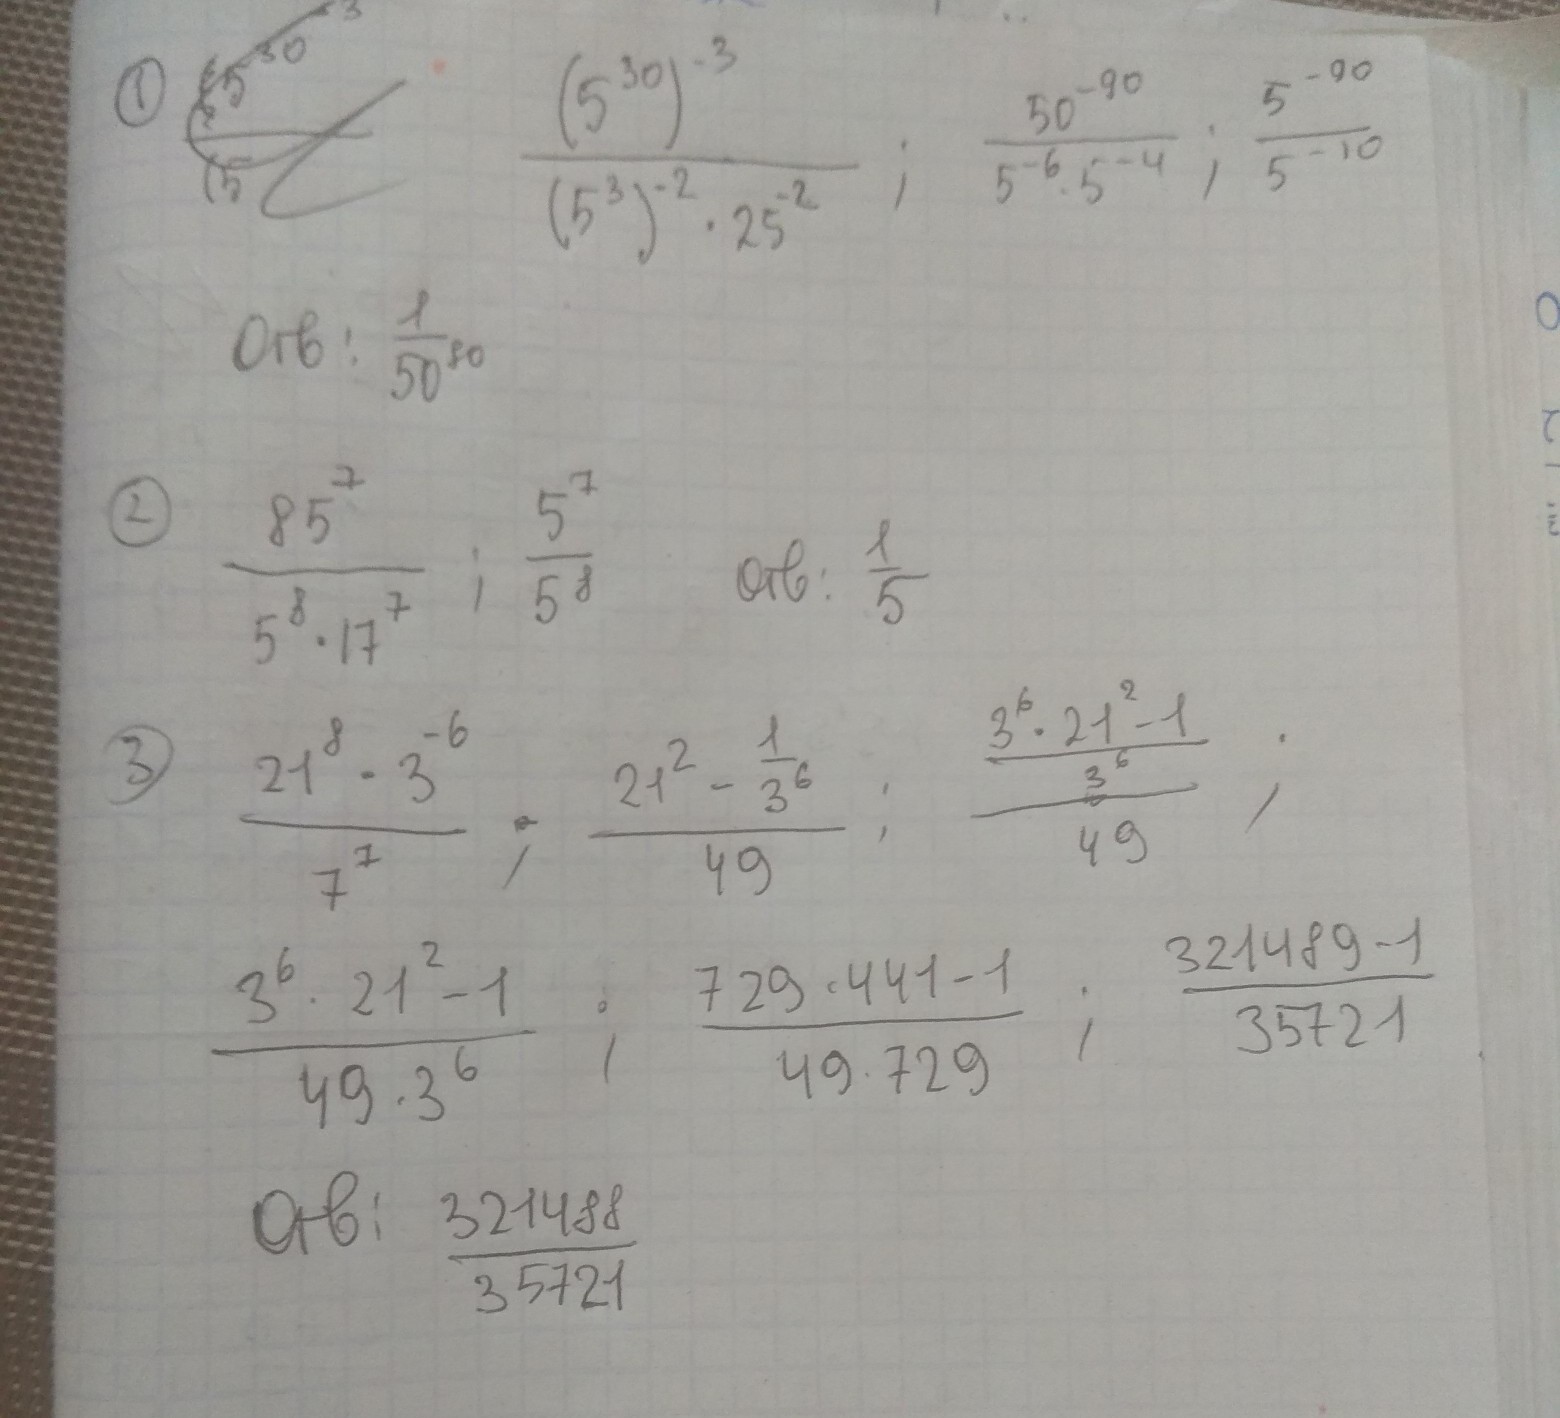 ① (5³⁰)⁻³ / ((5³)⁻² · 25⁻²) ; 50⁻⁹⁰ / (5⁻⁶ · 5⁻⁴) ; 5⁻⁹⁰ / 5⁻¹⁰
Отв: 1 / 50⁸⁰
② 85⁷ / (5⁸ · 17⁷) ; 5⁷ / 5⁸ Отв: 1 / 5
③ (21⁸ · 3⁻⁶) / 7⁷ ; (21² - 1/3⁶) / 49 ; ((3⁶ · 21² - 1) / 3⁶) / 49 ;
(3⁶ · 21² - 1) / (49 · 3⁶) ; (729 · 441 - 1) / (49 · 729) ; (321489 - 1) / 35721
Отв: 321488 / 35721